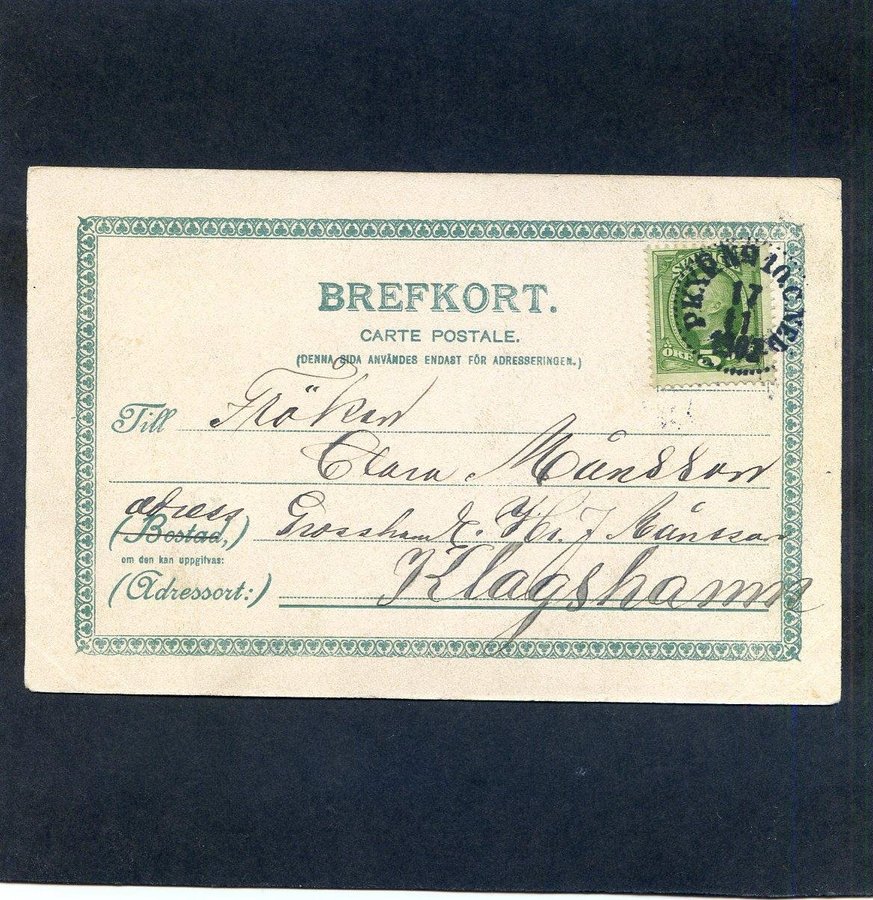 BREFKORT.
CARTE POSTALE.
(DENNA SIDA ANVÄNDES ENDAST FÖR ADRESSERINGEN.)
PKXP No 10. C NED
17
11
ÖRE 5
Till Fröken
Clara Månsson
adress
(Bostad,) Grosshand. H. J Månsson
om den kan uppgifvas:
(Adressort:) Klagshamn